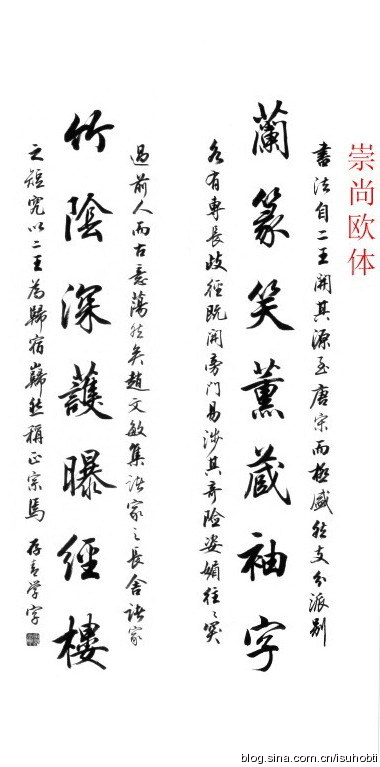 崇尚欧体
書法自二王開其源至唐宋而極盛然支分派別
蘭篆笑薰蔵袖字
各有專長歧徑既開旁門易涉其奇險姿媚往々突
過前人而古意蕩然矣趙文敏集諸家之長舍諸家
竹陰深護曝經樓
之短究以二王為歸宿巋然稱正宗焉 存青学字
blog.sina.com.cn/isuhobti